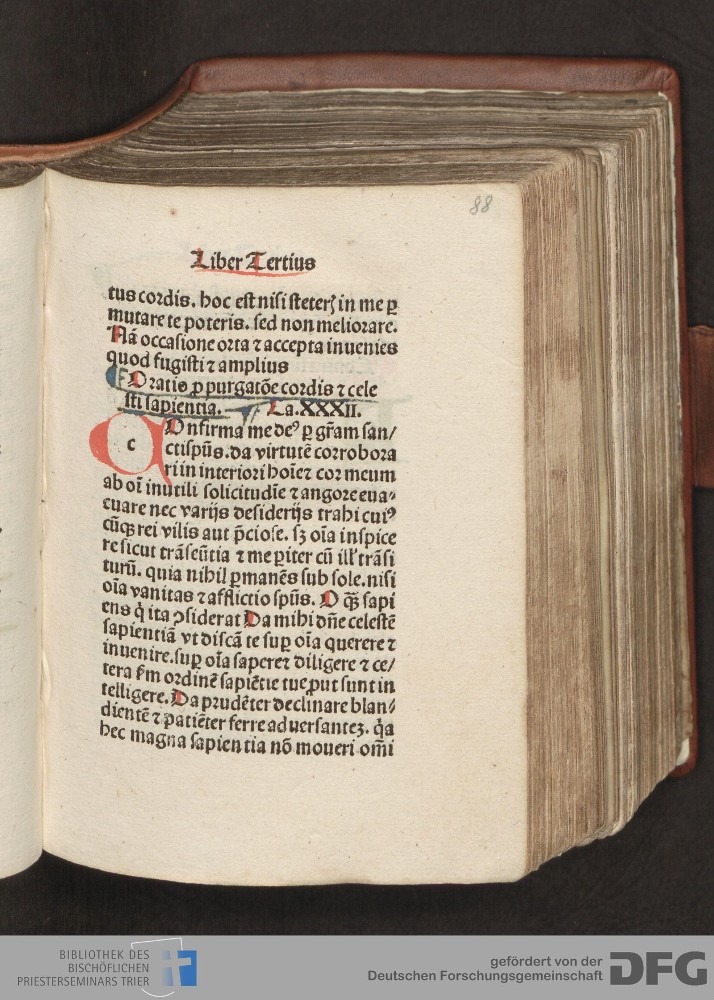 88
Liber Tertius
tus cordis. hoc est nisi steterꝭ in me ꝑ
mutare te poteris. sed non meliorare.
Nã occasione orta ⁊ accepta inuenies
quod fugisti ⁊ amplius
Oratio ꝓ purgatõe cordis ⁊ cele
sti sapientia. Ca.XXXII.
COnfirma me deꝰ ꝑ grãm san/
ctispũs. da virtutẽ corrobora
ri in interiori hoĩeꝫ cor meum
ab oĩ inutili solicitudĩe ⁊ angore eua⸗
cuare nec varijs desiderijs trahi cuiꝰ
cũqꝫ rei vilis aut p̃ciose. sꝫ oĩa inspice
re sicut trãseũtia ⁊ me ꝑiter cũ illꝭ trãsi
turũ. quia nihil ꝑmanẽs sub sole. nisi
oĩa vanitas ⁊ afflictio spũs. O q̃ꝫ sapi
ens q̇ ita ꝯsiderat Da mihi dñe celestẽ
sapientiã vt discã te suꝑ oĩa querere ⁊
inuenire. suꝑ oĩa sapereꝫ diligere ⁊ ce/
tera ẜm ordinẽ sapiẽtie tue ꝓut sunt in
telligere. Da prudẽter declinare blan/
dientẽ ⁊ patiẽter ferre aduersanteꝫ. q̇a
hec magna sapientia nõ moueri om̃i
BIBLIOTHEK DES
BISCHÖFLICHEN
PRIESTERSEMINARS TRIER
gefördert von der
Deutschen Forschungsgemeinschaft
DFG